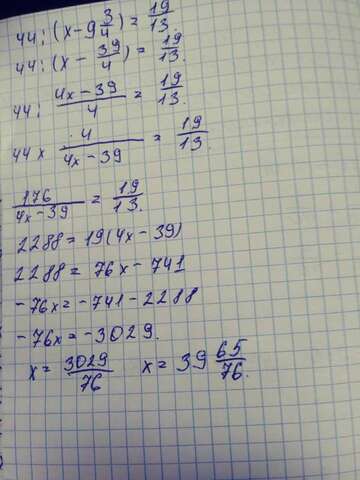 44:(x-9 3/4)=19/13.
44:(x - 39/4)=19/13.
44: (4x-39)/4=19/13.
44 x 4/(4x-39)=19/13.
176/(4x-39)=19/13.
2288=19(4x-39)
2288=76x-741
-76x=-741-2288
-76x=-3029.
x=3029/76 x=39 65/76.